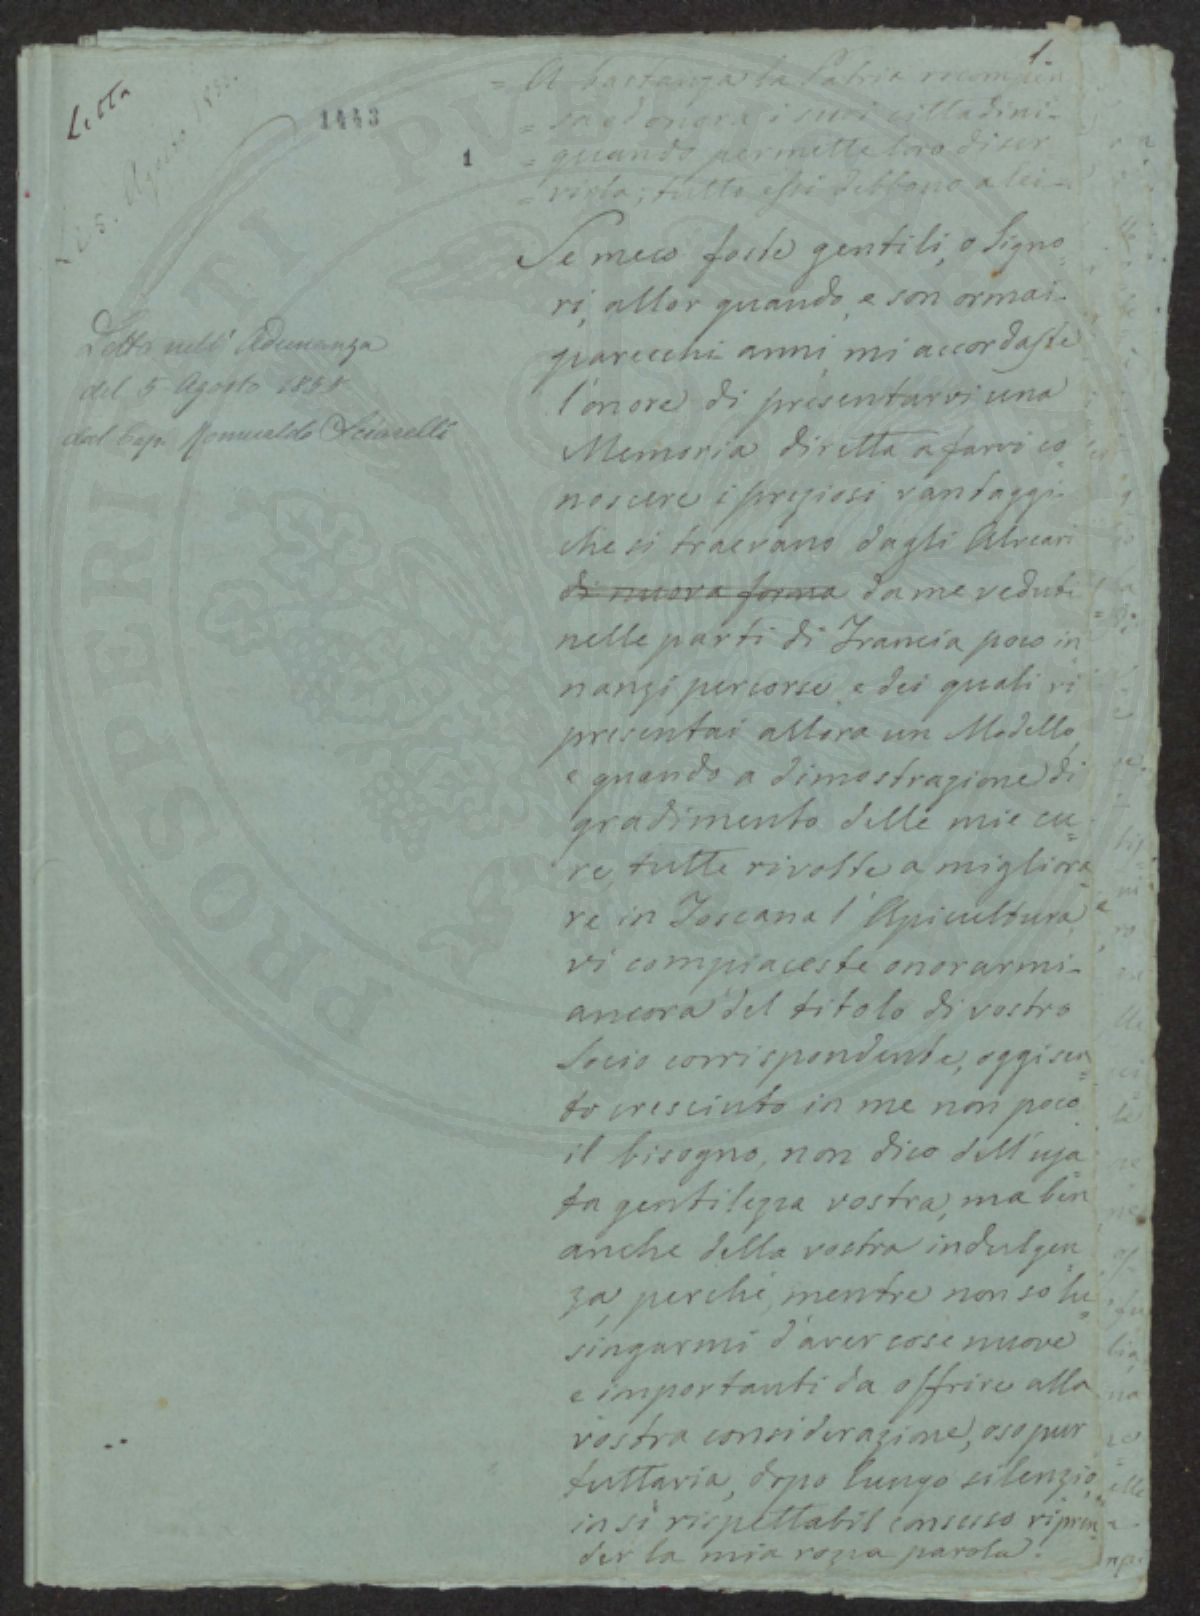 1.
Letta
li 5. Agosto 1838.
1443
1
= A bastanza la Patria ricompen
= sa ed onora i suoi cittadini
= quando permette loro di ser
= virla; tutto essi debbono a lei =
Letta nell' Adunanza
del 5 Agosto 1838
dal Cap. Romualdo Sciarelli
Se meco foste gentili, o Signo
ri, allor quando, e son ormai
parecchi anni, mi accordaste
l'onore di presentarvi una
Memoria diretta a farvi co
noscere i preziosi vantaggi
che si traevano dagli Alveari
di nuova forma da me veduti
nelle parti di Francia poco in
nanzi percorse, e dei quali vi
presentai allora un Modello,
e quando a dimostrazione di
gradimento delle mie cu=
re, tutte rivolte a migliora
re in Toscana l'Apicultura,
vi compiaceste onorarmi
ancora del titolo di vostro
Socio corrispondente, oggi sen=
to cresciuto in me non poco
il bisogno, non dico dell'usa
ta gentilezza vostra, ma ben
anche della vostra indulgen
za, perchè, mentre non so lu=
singarmi d'aver cose nuove
e importanti da offrire alla
vostra considerazione, oso pur
tuttavia, dopo lungo silenzio,
in sì rispettabil consesso ripren=
der la mia rozza parola.
PROSPERITATI PUBLICAE